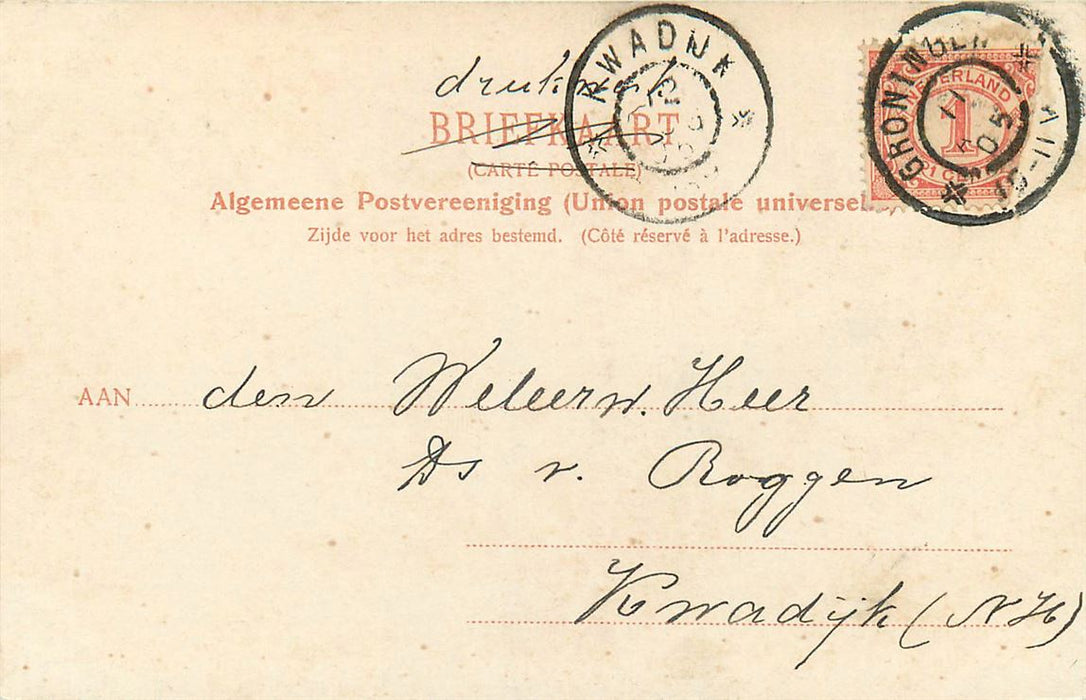 drukwerk
BRIEFKAART
(CARTE POSTALE)
Algemeene Postvereeniging (Union postale universelle)
Zijde voor het adres bestemd. (Côté réservé à l'adresse.)
KWADIJK
GRONINGEN
11
05
NEDERLAND
1
1 CENT
AAN den Weleerw. Heer
Ds v. Roggen
Kwadijk (N H)